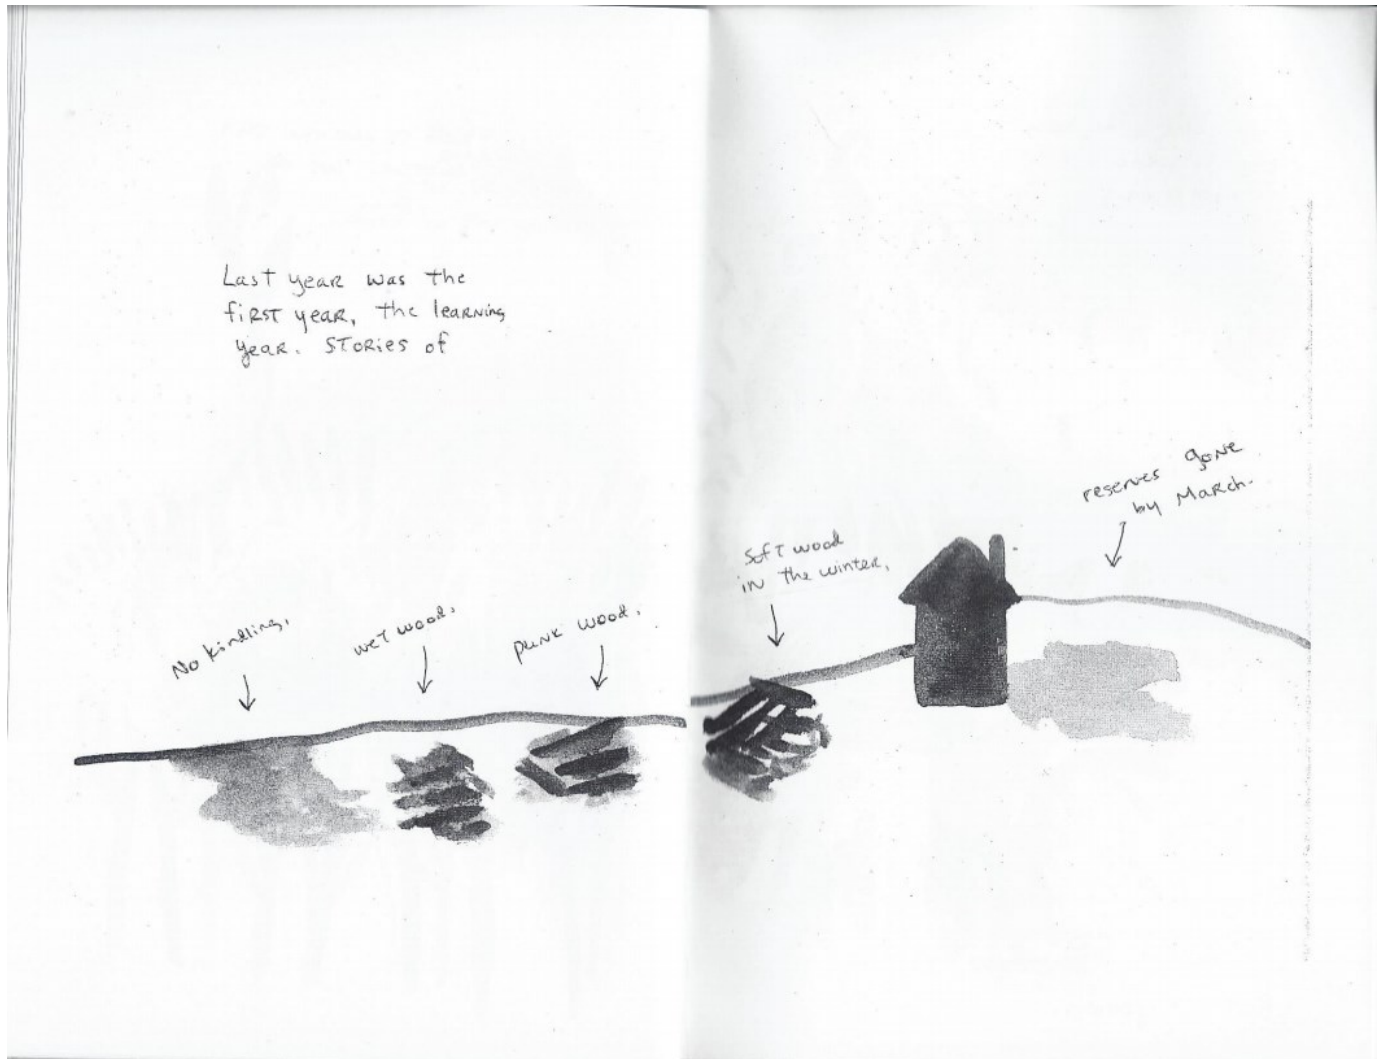 Last year was the
first year, the learning
year. Stories of
No kindling,
wet wood,
punk wood,
Soft wood
in the winter,
reserves gone
by March.